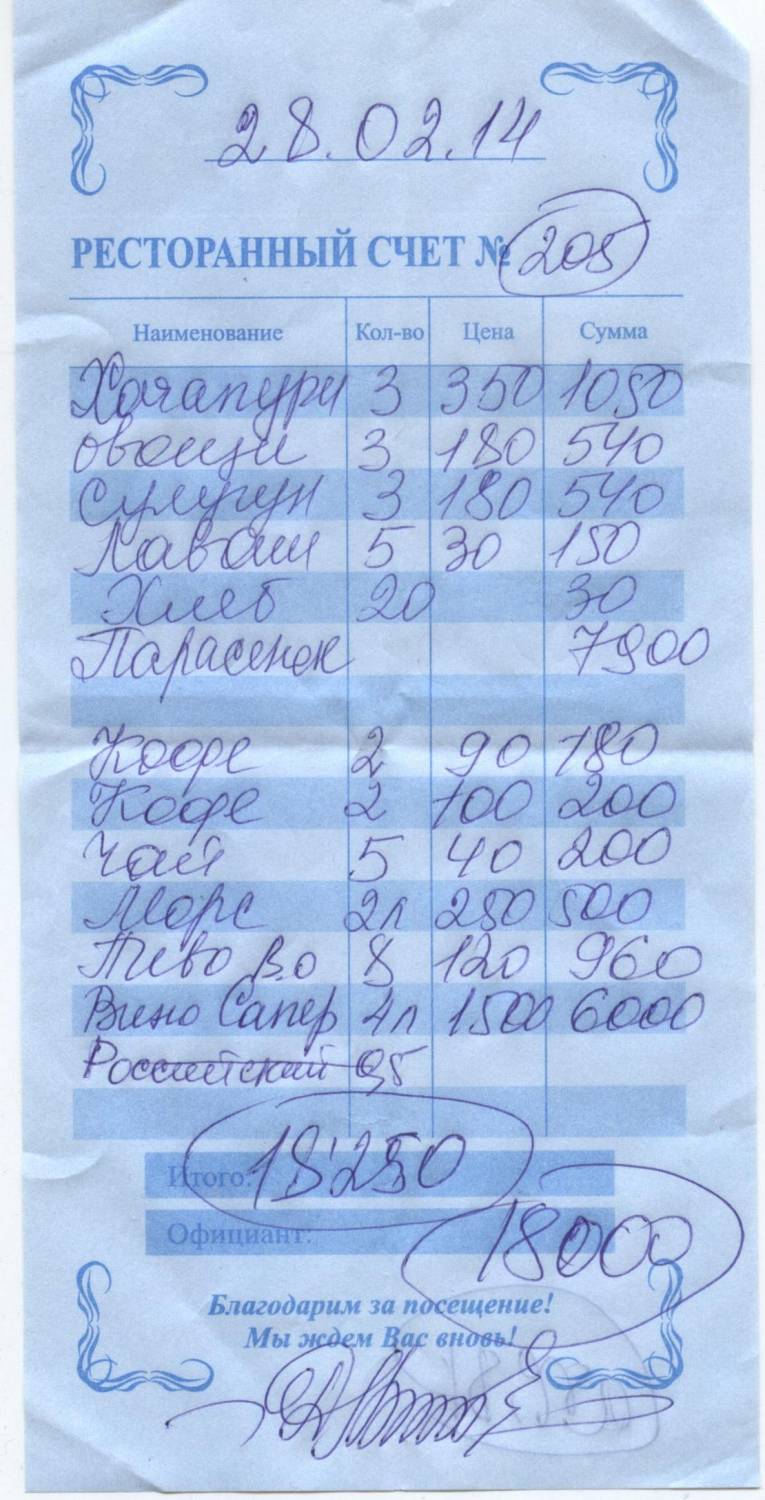 28.02.14
РЕСТОРАННЫЙ СЧЕТ № 205
Наименование Кол-во Цена Сумма
Хачапури 3 350 1050
овощи 3 180 540
Сулугун 3 180 540
Лаваш 5 30 150
Хлеб 20 30
Парасенок 7900
Кофе 2 90 180
Кофе 2 100 200
Чай 5 40 200
Морс 2л 250 500
Пиво В.о 8 120 960
Вино Сапер 4л 1500 6000
Российский 0,5
Итого: 18'250
Официант: 18000
Благодарим за посещение!
Мы ждем Вас вновь!